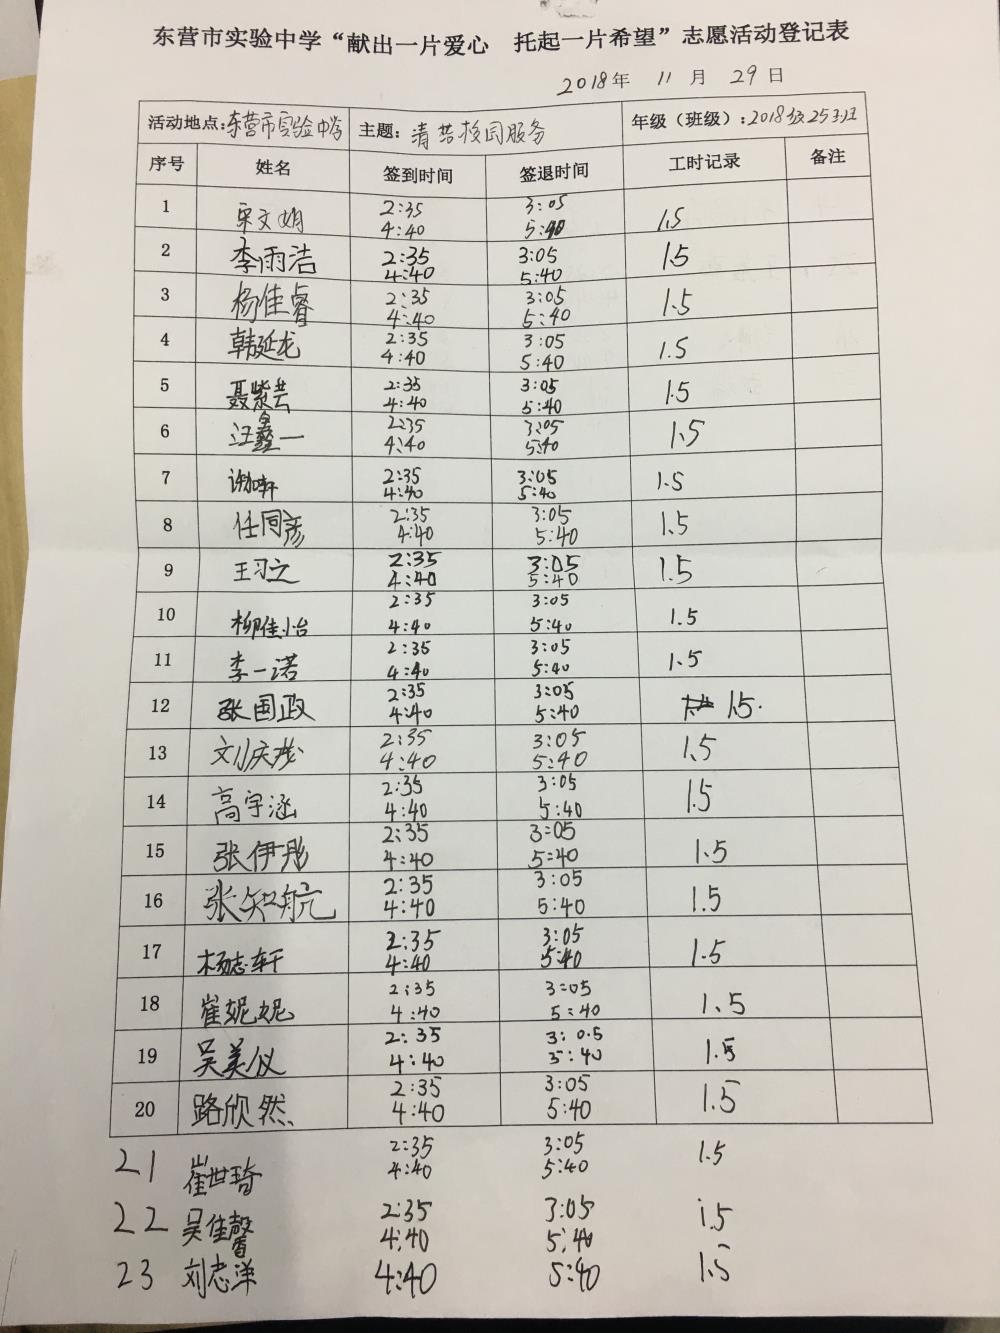 东营市实验中学“献出一片爱心 托起一片希望”志愿活动登记表
2018年 11 月 29 日
活动地点:东营市实验中学 主题: 清苦校园服务 年级（班级）:2018级25班
序号 姓名 签到时间 签退时间 工时记录 备注
1 宋文娟 2:35 4:40 3:05 5:40 1.5
2 李雨浩 2:35 4:40 3:05 5:40 1.5
3 杨佳睿 2:35 4:40 3:05 5:40 1.5
4 韩延龙 2:35 4:40 3:05 5:40 1.5
5 聂紫芸 2:35 4:40 3:05 5:40 1.5
6 汪鑫一 2:35 4:40 3:05 5:40 1.5
7 2:35 4:40 3:05 5:40 1.5
8 任同彦 2:35 4:40 3:05 5:40 1.5
9 王习之 2:35 4:40 3:05 5:40 1.5
10 柳佳怡 2:35 4:40 3:05 5:40 1.5
11 李一诺 2:35 4:40 3:05 5:40 1.5
12 张国政 2:35 4:40 3:05 5:40 1.5.
13 刘庆茂 2:35 4:40 3:05 5:40 1.5
14 高宇涵 2:35 4:40 3:05 5:40 1.5
15 张伊彤 2:35 4:40 3:05 5:40 1.5
16 张知航 2:35 4:40 3:05 5:40 1.5
17 杨志轩 2:35 4:40 3:05 5:40 1.5
18 崔妮妮 2:35 4:40 3:05 5:40 1.5
19 吴美仪 2:35 4:40 3:0.5 5:40 1.5
20 路欣然 2:35 4:40 3:05 5:40 1.5
21 崔世琦 2:35 4:40 3:05 5:40 1.5
22 吴佳馨 2:35 4:40 3:05 5:40 1.5
23 刘志洋 4:40 5:40 1.5